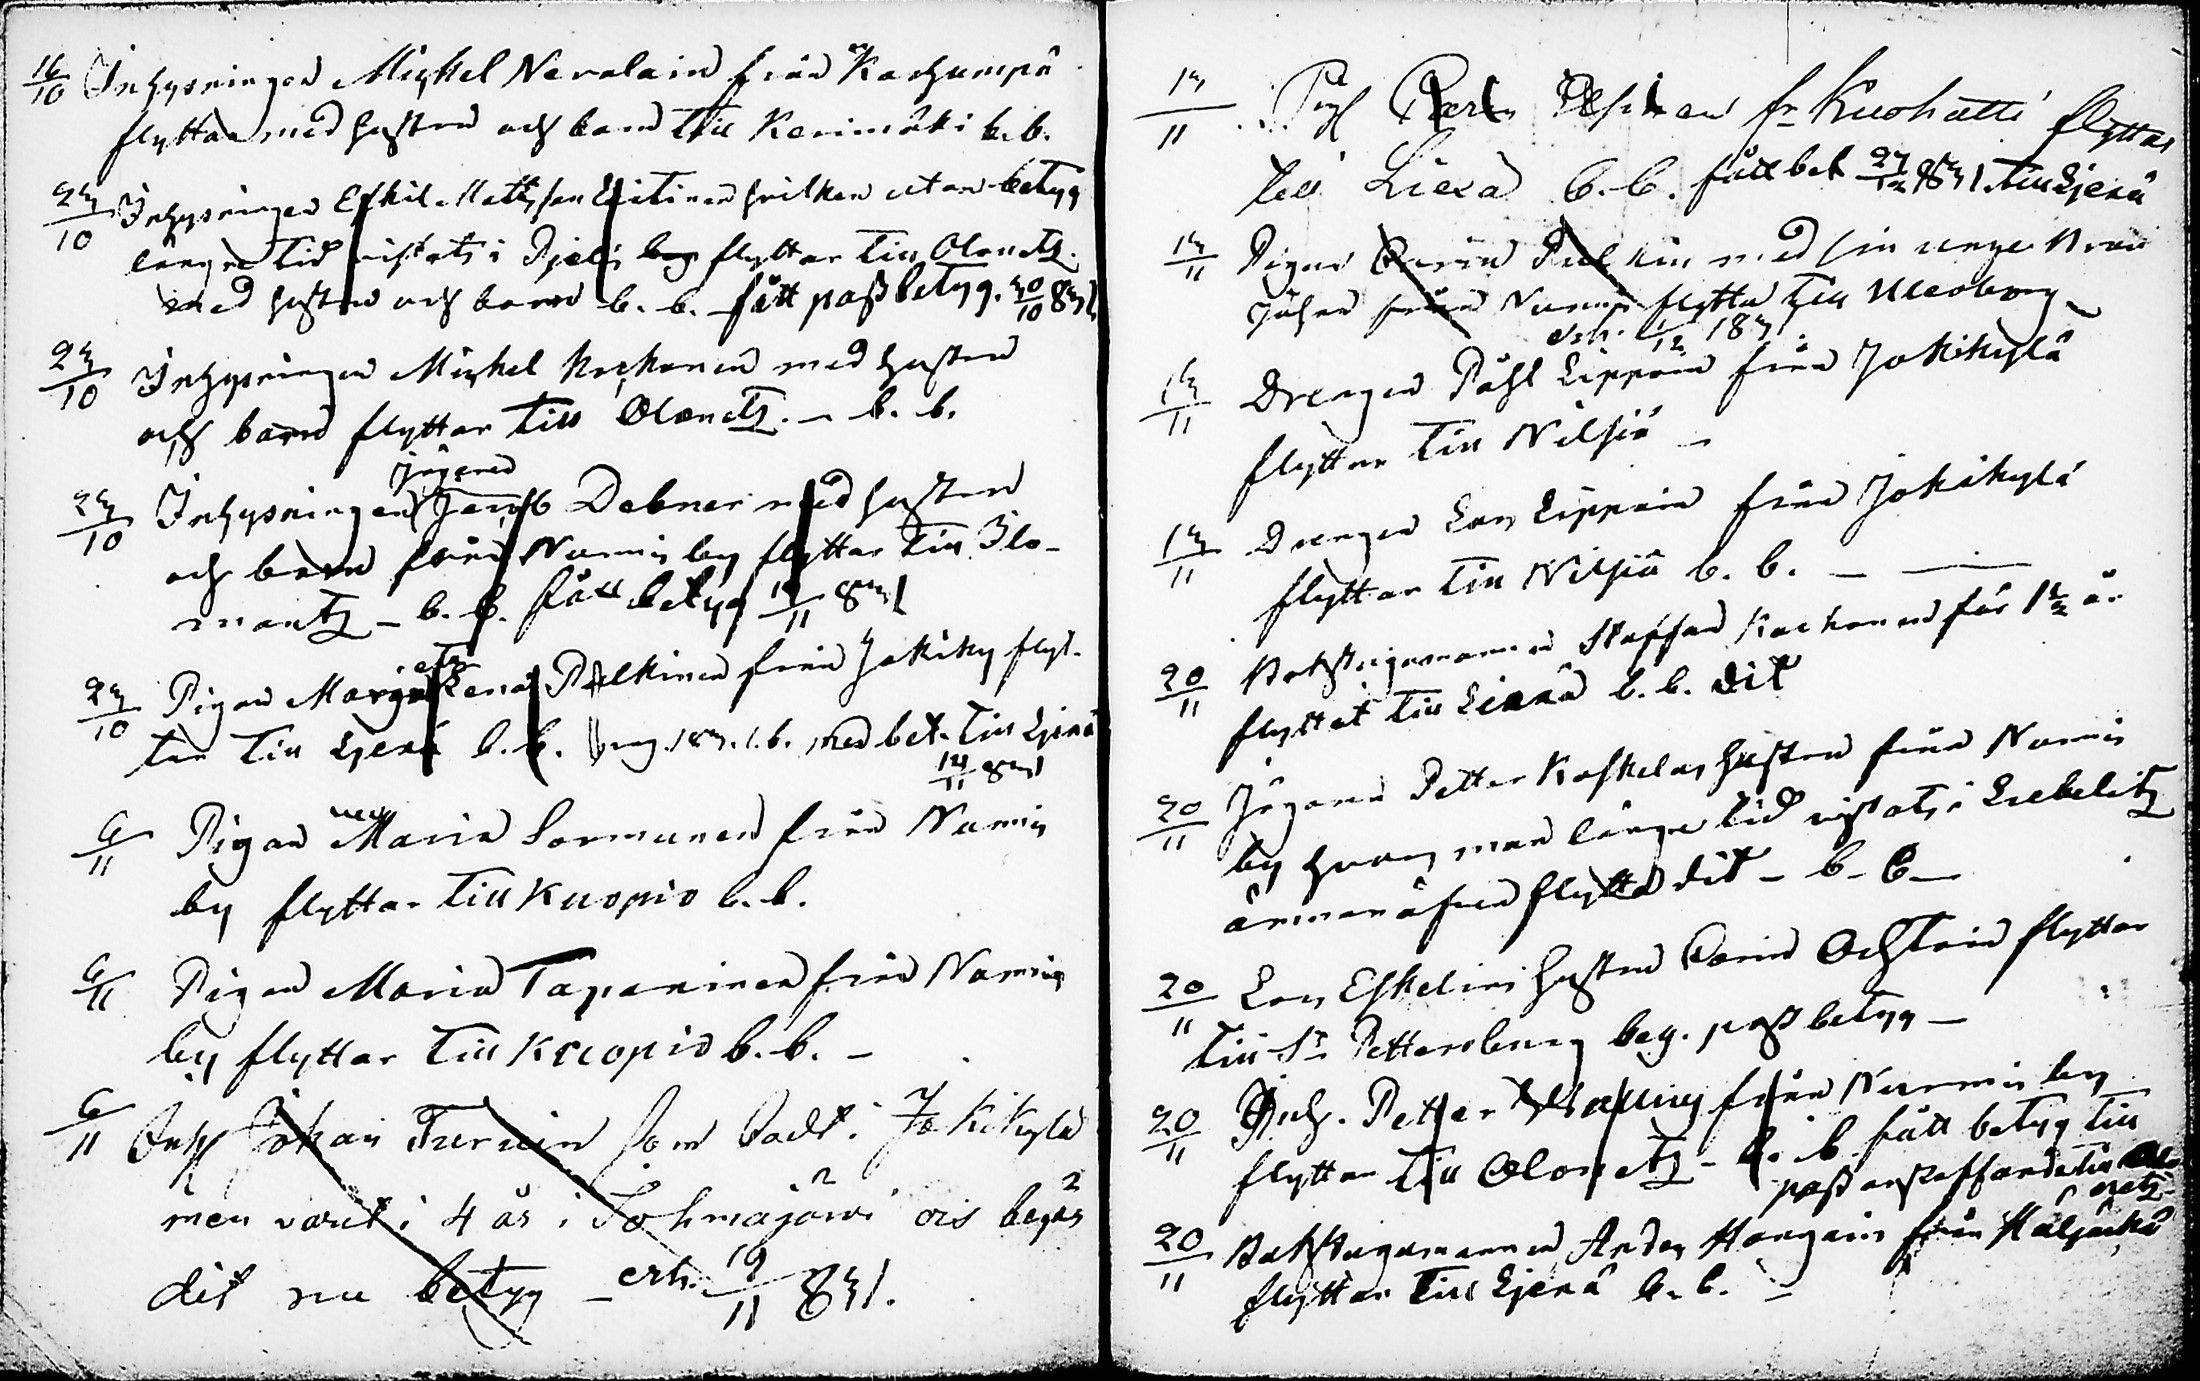 16/10 Inhysningen Michel Nevalain från Karhumpä
flyttar med hustru och barn till Kerimäki b. b.
23/10 Inhysningen Eskil Mattsson hvilken utan betyg
länge tid vistats i Pjelis flyttar till Olonetz
med hustru och barn b. b. fått passbetyg. 30/10 831
23/10 Inhysningen Michel Korhonen med hustru
och barn flyttar till Olonetz. – b. b.
jägaren
23/10 Inhysningen Jacob Debner med hustru
och barn från Nurmis by flyttar till Ilo-
mantz – b. b. fått betyg 11 831
23/10 Pigan Lena Pulkinen från Jokiky flyt-
tar till Ljexa b. b. med bet. till Ljexa
11 831
6/11 Pigan Maria Sormunen från Nurmis
by flyttar till Kuopio b. b.
6/11 Pigan Maria Tapaninen från Nurmis
by flyttar till Kuopio b. b. –
6/11 Inh Johan Turuin som bodt i Jokikylä
men varit i 4 år i Tohmajärvi begär
dit nu betyg – erh. 19/11 831.
13/11 fr Kuohatti flyttar
till Liexa b. b. fått bet 27/12 831 till Ljexa
13/11 Pigan Carin Pulkin med sin unge
från Nurmis flytta till Uleåborg
erh. 1/12 183
13/11 Drengen Påhl Lippoin från Jokikylä
flyttar till Nilsiä –
13/11 Drengen Lars Lippoin från Jokikylä
flyttar till Nilsiä b. b. –
20/11 Backstugumannen Staffan Korhonen för 1½ år
flyttat till Liexa b. b. dit
20/11 Jägaren Petter Koskelas hustru från Nurmis
by hvars man länge tid vistats i Libelitz
ämnar äfven flytta dit – b. b. –
20/11 Lars Eskelins hustru Carin flyttar
till St Pettersburg beg. passbetyg –
20/11 Inh. Petter från Nurmis by
flyttar till Olonetz – b. b. fått betyg till
pass anskaffande till Olo-
netz
20/11 Backstugumannen Anders Hangain från
flyttar till Ljexa b. b. –